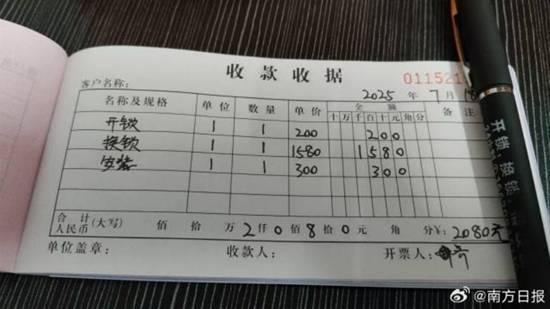 收款收据
0115215
客户名称： 2025 年 7 月 18
名称及规格 单位 数量 单价 金额 备注
十万千百十元角分
开锁 1 1 200 200
换锁 1 1 1580 1580
安装 1 1 300 300
合计人民币 (大写) 佰 拾 万 2 仟 0 佰 8 拾 0 元 角 分 ¥：2080元
单位盖章： 收款人： 开票人：
开锁 换锁
@南方日报